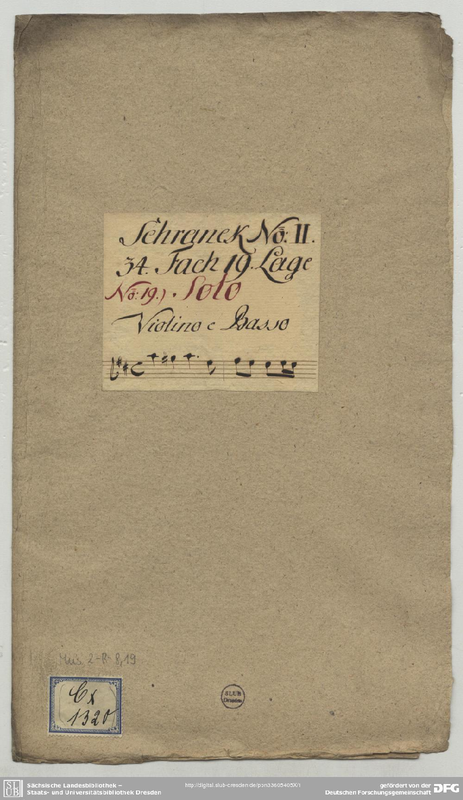 Schranck No: II.
34. Fach 19. Lage
No: 19.) Solo
Violino e Basso
Mus. 2-R-8,19
Cx
1320
SLUB
Dresden
Sächsische Landesbibliothek –
Staats- und Universitätsbibliothek Dresden
gefördert von der
Deutschen Forschungsgemeinschaft
DFG